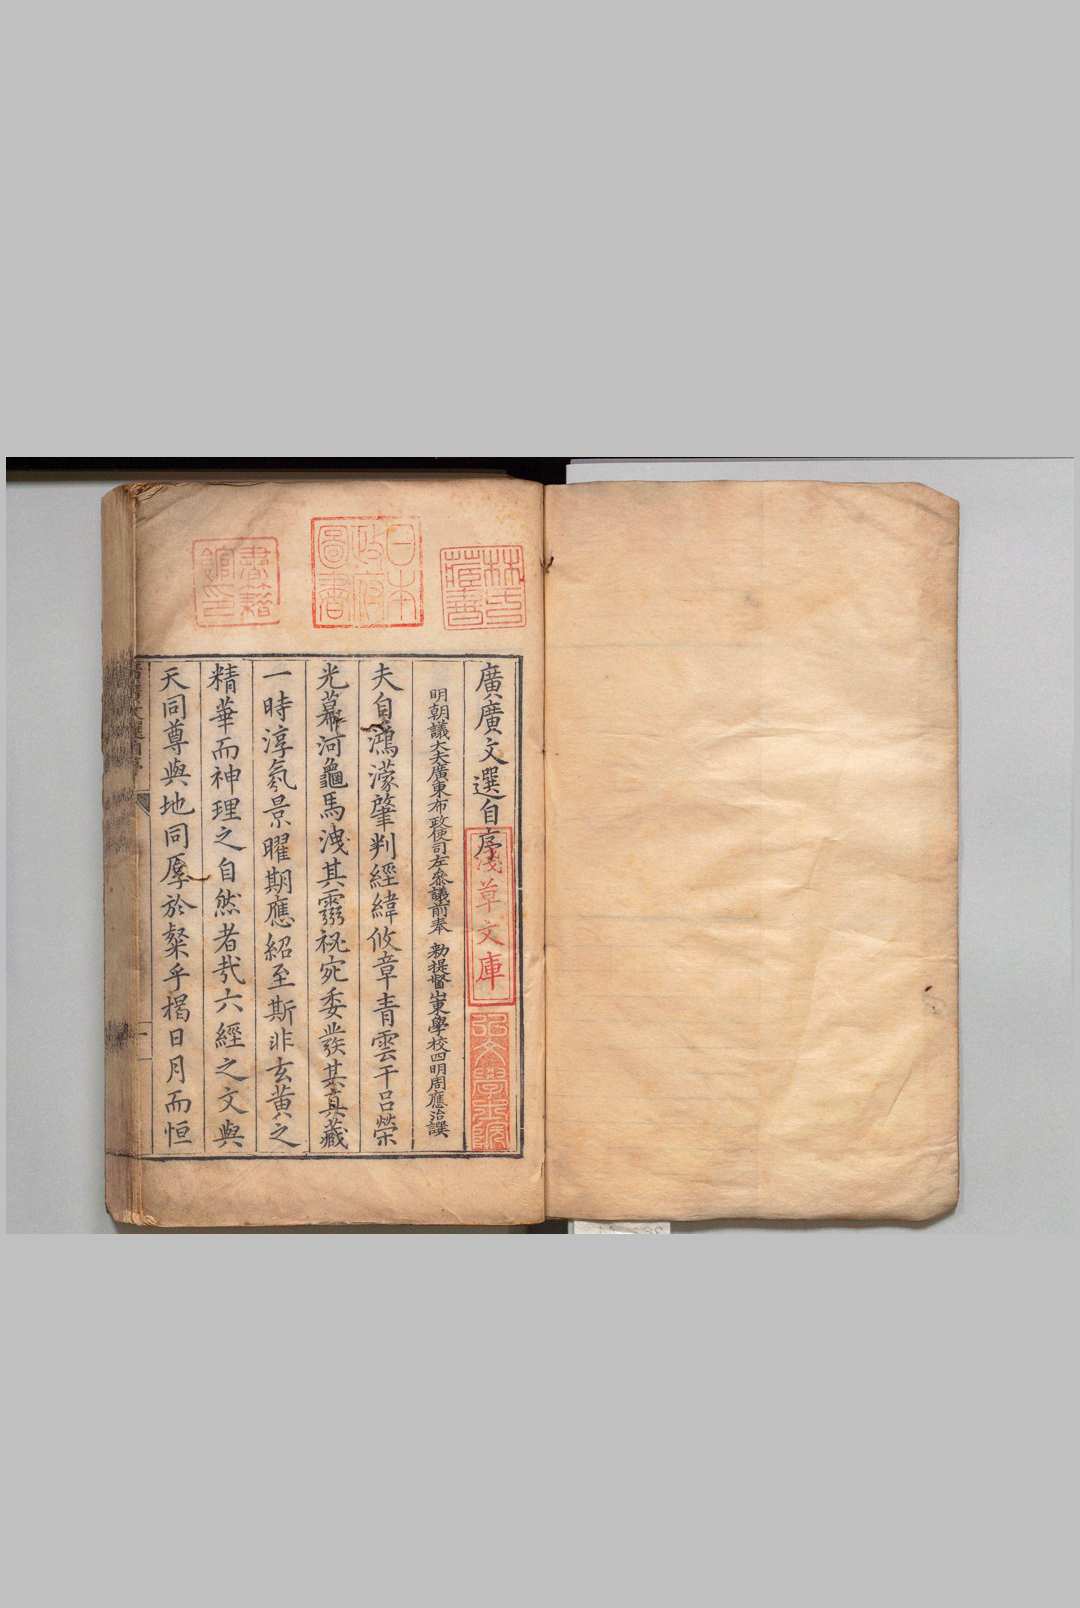 廣廣文選自序
明朝議大夫廣東布政使司左叅議前奉 勑提督山東學校四明周應治譔
夫自鴻濛肇判經緯攸章青雲干呂榮
光幕河龜馬洩其靈祕宛委發其真藏
一時淳氣景曜期應紹至斯非玄黃之
精華而神理之自然者哉六經之文與
天同尊與地同厚於粲乎揭日月而恒
林氏
藏書
日本
政府
圖書
書籍
館印
淺草文庫
弘文學士院